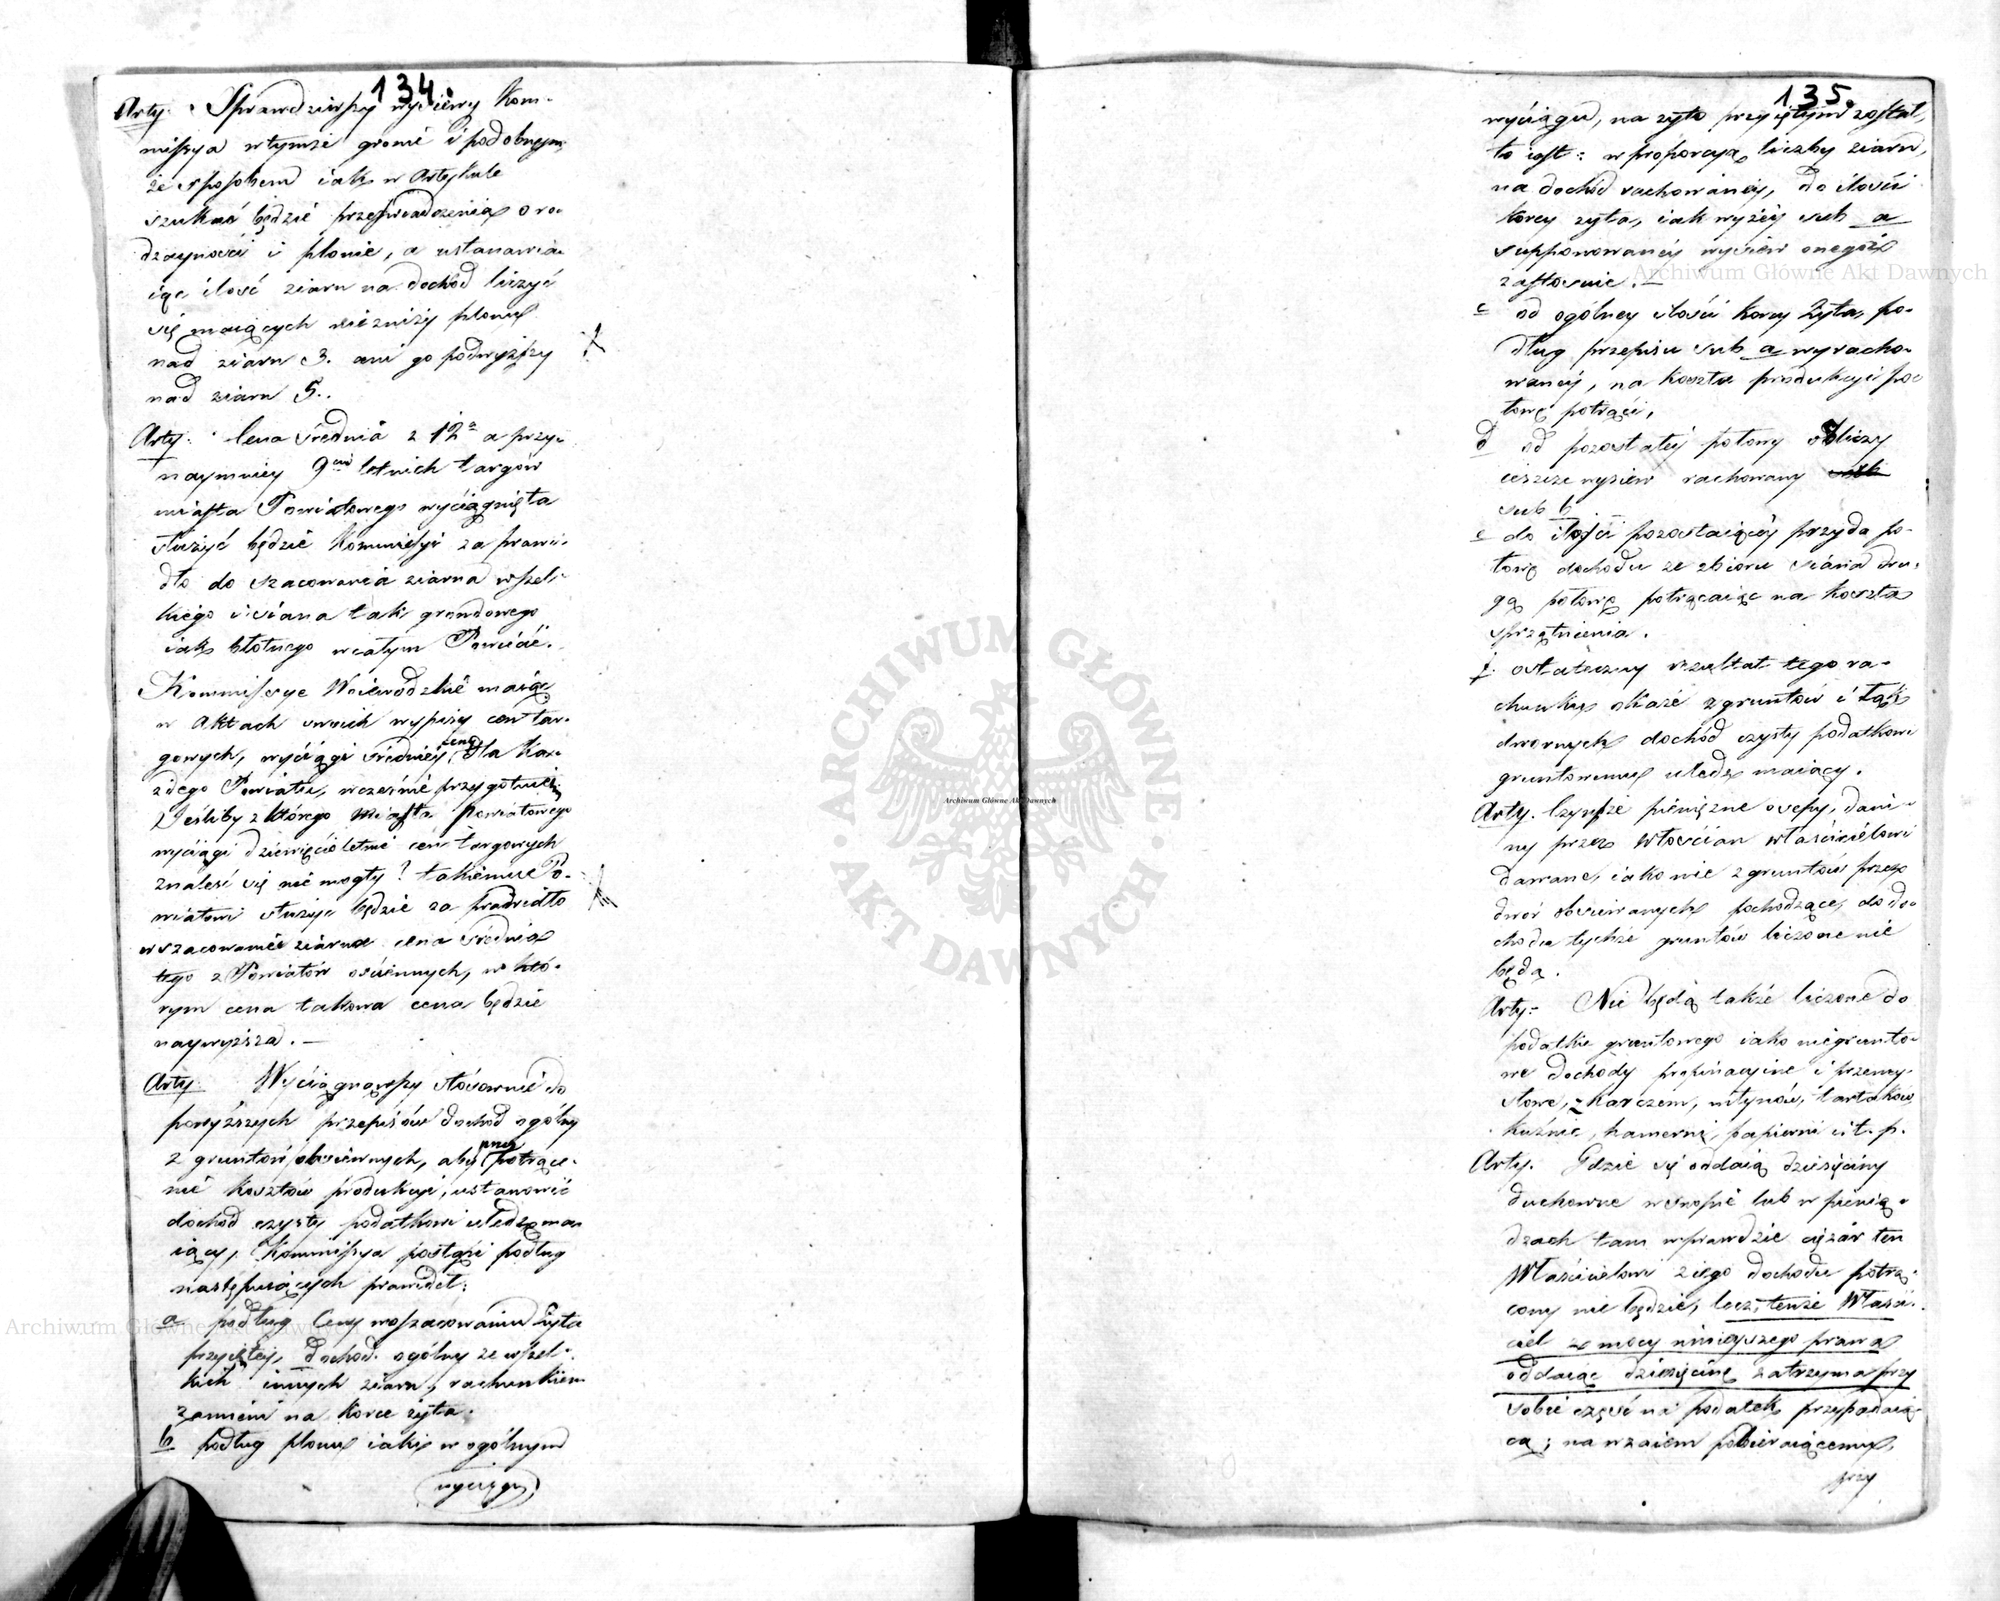 134.
Arty: Sprawdziwszy wysiewy Kom-
missya w tymże gronie i podobnym
że sposobem iak w Artykule
szukać będzie przeświadczenia o ro-
dzayności i plonie, a ustanawia-
iąc ilość ziarn na dochód liczyć
się maiących nie zniży plonu
nad ziarn 3. ani go podwyższy
nad ziarn 5.
Arty: Cena średnia z 12 a przy-
naymniey 9cio letnich targów
miasta Powiatowego wyciągnięta
służyć będzie Kommissyi za prawi-
dło do szacowania ziarna wszel-
kiego i siana tak grondowego
iak błotnego w całym Powiecie.
Kommissye Woiewódzkie maiąc
w Aktach swoich wypisy cen tar-
gowych, wyciągi średniéy ceny dla Ka-
żdego Powiatu, wcześnie przygotuią
Jeśliby z którego Miasta Powiatowego
wyciągi dziewięcioletnie cen targowych
znaleść się nie mogły? takiemu Po-
wiatowi służyć będzie za prawidło
w szacowaniu ziarna cena średnia
tego z Powiatów ościennych, w któ-
rym cena takowa cena będzie
naywyższa. —
Arty: Wyciągnąwszy stosownie do
powyższych przepisów dochód ogólny
z gruntów obsiewnych, aby przez potrące-
nie kosztów produkcyi, ustanowić
dochód czysty podatkowi uledz ma-
iący, Kommissya postąpi podług
następuiących prawideł:
a podług Ceny w oszacowaniu żyta
przyiętéy, dochód ogólny ze wszel-
kich innych ziarn, rachunkiem
zamieni na Korce żyta.
b podług plonu iaki w ogólnym
wyciągu
135.
wyciągu, na żyto przyiętym został,
to iest: w proporcyą liczby ziarn,
na dochód rachowanéy, do ilości
korcy żyta, iak wyżéy sub a
supponowanéy wysiew onegoż
zastosuie. —
c od ogólney ilości Korcy Żyta, po-
dług przepisu sub a wyracho-
wanéy, na koszta produkcyi po-
łowę potrąci,
d od pozostałéy połowy odliczy
ieszcze wysiew rachowany
sub b
e do ilości pozostaiącéy przyda po-
łowę dochodu ze zbioru siana dru-
gą połowę potrącaiąc na koszta
sprzątnienia.
f ostateczny rezultat tego ra-
chunku okaże z gruntów i Łąk
dwornych dochód czysty podatkowi
gruntowemu uledz maiący.
Arty. Czynsze pieniężne osepy, dani-
ny przez Włościan właścicielowi
dawane, iako nie z gruntów przez
dwór obsiewanych pochodzące, do do-
chodu tychże gruntów liczone nie
będą.
Arty: Nie będą także liczone do
podatku gruntowego iako niegrunto-
we dochody propinacyine i przemy-
słowe, z Karczem, młynów, tartaków,
kuźnic, hamerni, papierni i t. p.
Arty. Gdzie się oddaią dziesięciny
duchowne w snopie lub w pienią-
dzach tam wprawdzie ciężar ten
Właścicielowi z iego dochodu potrą-
cony nie będzie, lecz tenże Właści-
ciel z mocy ninieyszego prawa
oddaiąc dziesięcinę zatrzyma przy
sobie część na podatek przypadaią-
cą; nawzaiem pobieraiącemu,
przy
Archiwum Główne Akt Dawnych
Archiwum Główne Akt Dawnych
Archiwum Główne Akt Dawnych
ARCHIWUM GŁÓWNE · AKT DAWNYCH ·